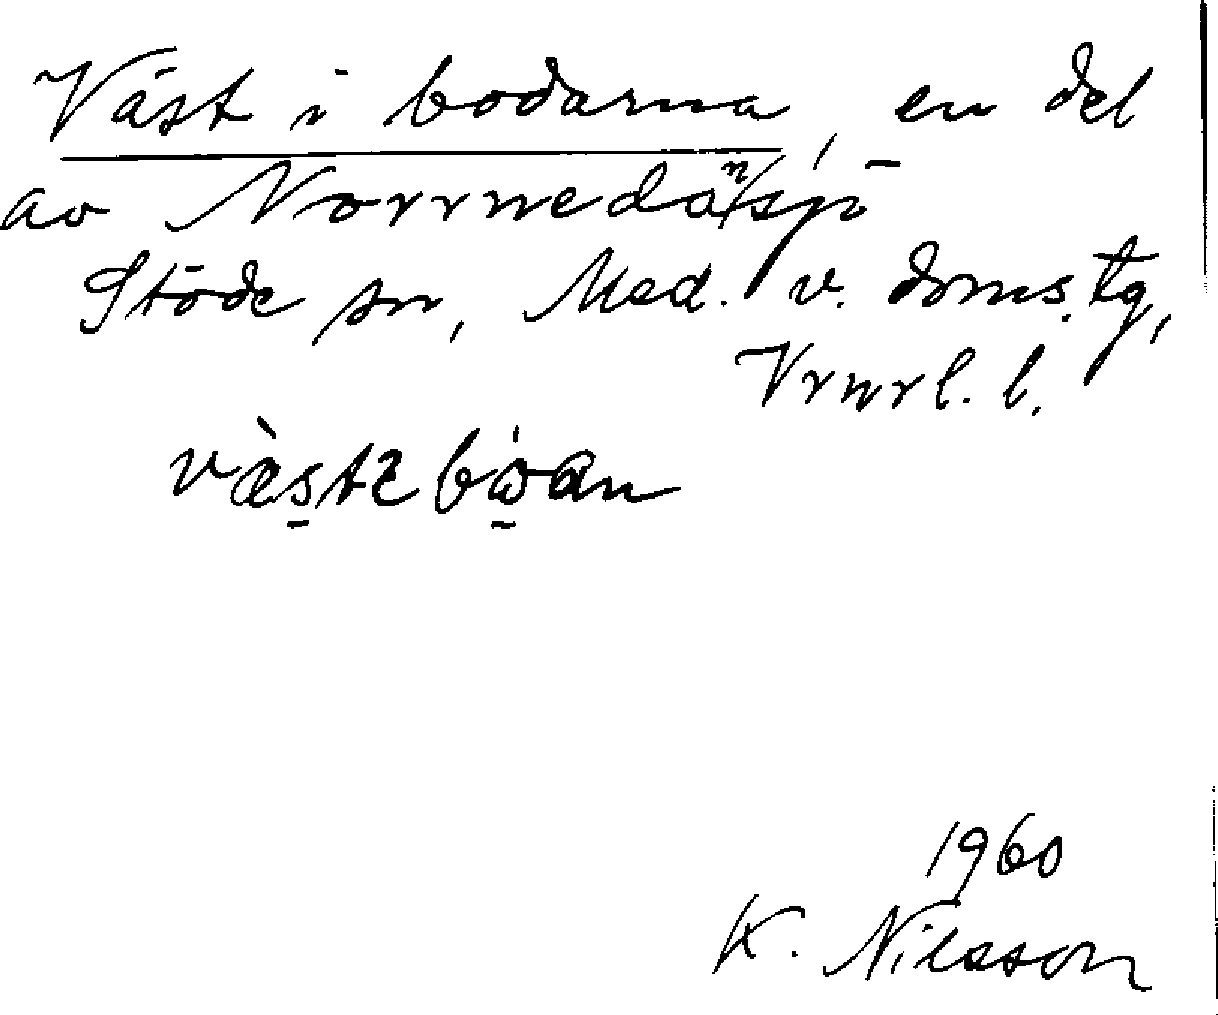 Väst i bodarna, en del
av Norrnedansjö
Stöde sn, Med. v. doms. tg,
Vrnrl. l.
1960
K. Nilsson